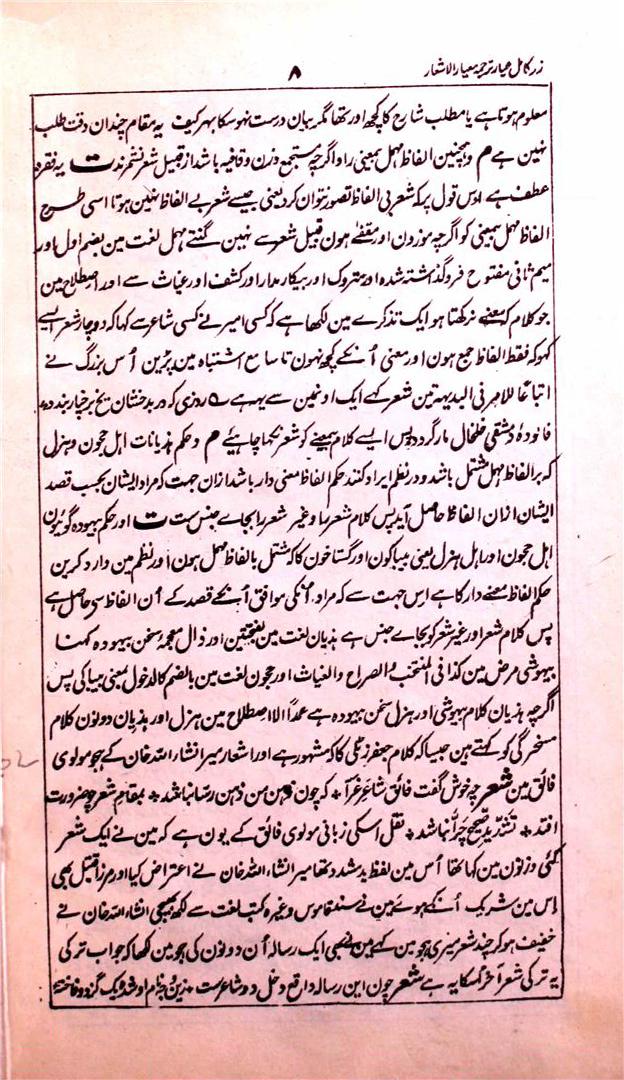 زر کامل عیار ترجمہ معیار الاشعار
۸
معلوم ہوتا ہے یا مطلب شارح کا کچھ اور تھا مگر بیان درست نہوسکا بہر کیف یہ مقام چندان دقت طلب
نہین ہے م و ہمچنین الفاظ مہمل بمعنی را و اگرچہ مستجمع وزن و قافیہ باشد از قبیل شعر نشمرند ت یہ فقرہ
عطف ہے اوس قول پر کہ شعر بی الفاظ تصور نتوان کرد یعنی جیسے شعر بے الفاظ نہین ہوتا اسی طرح
الفاظ مہمل بمعنی کو اگرچہ موزون اور مقفے ہون قبیل شعر سے نہین گنتے مہمل لغت مین بضم اول اور
میم ثانی مفتوح فروگذاشتہ شدہ اور متروک اور بیکار مدار اور کشف اور غیاث سے اور اصطلاح مین
جو کلام کہ معنے نرکھتا ہو ایک تذکرے مین لکھا ہے کہ کسی امیر نے کسی شاعر سے کہا کہ دو چار شعر ایسے
کہو کہ فقط الفاظ جمع ہون اور معنی اُنکے کچھ نہون تا سامع اشتباہ مین پڑین اُس بزرگ نے
اتباعًا للامر فی البدیہہ تین شعر کہے ایک اونمین سے یہ ہے ۵ روزی کہ در بدخشان یخ بر چنار بندد ہ
فانودۂ دمشقی خلخال مار گردد پس ایسے کلام بمعنے کو شعر نکہا چاہئے م و حکم ہذیانات اہل مجون و ہزل
کہ بر الفاظ مہمل مشتمل باشد و در نظم ایراد کنند حکم الفاظ معنی دار باشد ازان جہت کہ مراد ایشان بحسب قصد
ایشان ازان الفاظ حاصل آید پس کلام شعر را و غیر شعر را بجاے جنس ست ت اور حکم بیہودہ گویون
اہل مجون اور اہل ہزل یعنی بیباکون اور گستاخون کا کہ مشتمل بالفاظ مہمل ہون اور نظم مین وارد کرین
حکم الفاظ معنے دار کا ہے اس جہت سے کہ مراد اُنکی موافق اُنکے قصد کے اُن الفاظ سی حاصل ہے
پس کلام شعر اور غیر شعر کو بجاے جنس ہے ہذیان لغت مین بفتحتین اور ذال معجمہ سخن بیہودہ کہنا
بیہوشی مرض مین کذا فی المنتخب و الصراح و الغیاث اور مجون لغت مین بالضم کالدخول بمعنی بیباکی پس
اگرچہ ہذیان کلام بیہوشی اور ہزل سخن بیہودہ ہے عمداً الا اصطلاح مین ہزل اور ہذیان دونون کلام
مسخرگی کو کہتے ہین جیسا کہ کلام جعفر زٹلی کا کہ مشہور ہے اور اشعار میر انشاء اللہ خان کے ہجو مولوی
فائق مین شعر چہ خوش گفت فائق شاعرِ غرّا ٭ کہ چون ذہن من ذہن رسا نباشد ٭ بمقامِ شعر چو ضرورت
افتد ٭ تشدیدِ صحیح چرا نباشد ٭ نقل اسکی زبانی مولوی فائق کے یون ہے کہ مین نے ایک شعر
کئی وزنون مین کہا تھا اُس مین لفظ بد شدد تھا میر انشاء اللہ خان نے اعتراض کیا اور مرزا قتیل بھی
اِس مین شریک اُنکے ہوئے مین نے سند قاموس وغیرہ کتب لغت سے لکھ بھیجی انشاء اللہ خان نے
خفیف ہوکر چند شعر میری ہجو مین کہے مین نے بھی ایک رسالہ اُن دونون کی ہجو مین لکھا کہ جواب ترکی
بہ ترکی شعر آخر اسکا یہ ہے شعر چون این رسالہ واقع دخل دو شاعر ست